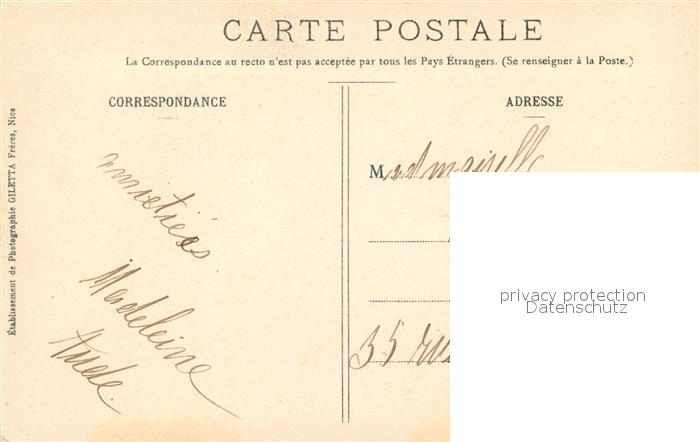 CARTE POSTALE
La Correspondance au recto n'est pas acceptée par tous les Pays Étrangers. (Se renseigner à la Poste.)
CORRESPONDANCE
amitiés
Madeleine
ADRESSE
Mademoiselle
35 rue
privacy protection
Datenschutz
Établissement de Photographie GILETTA Frères, Nice